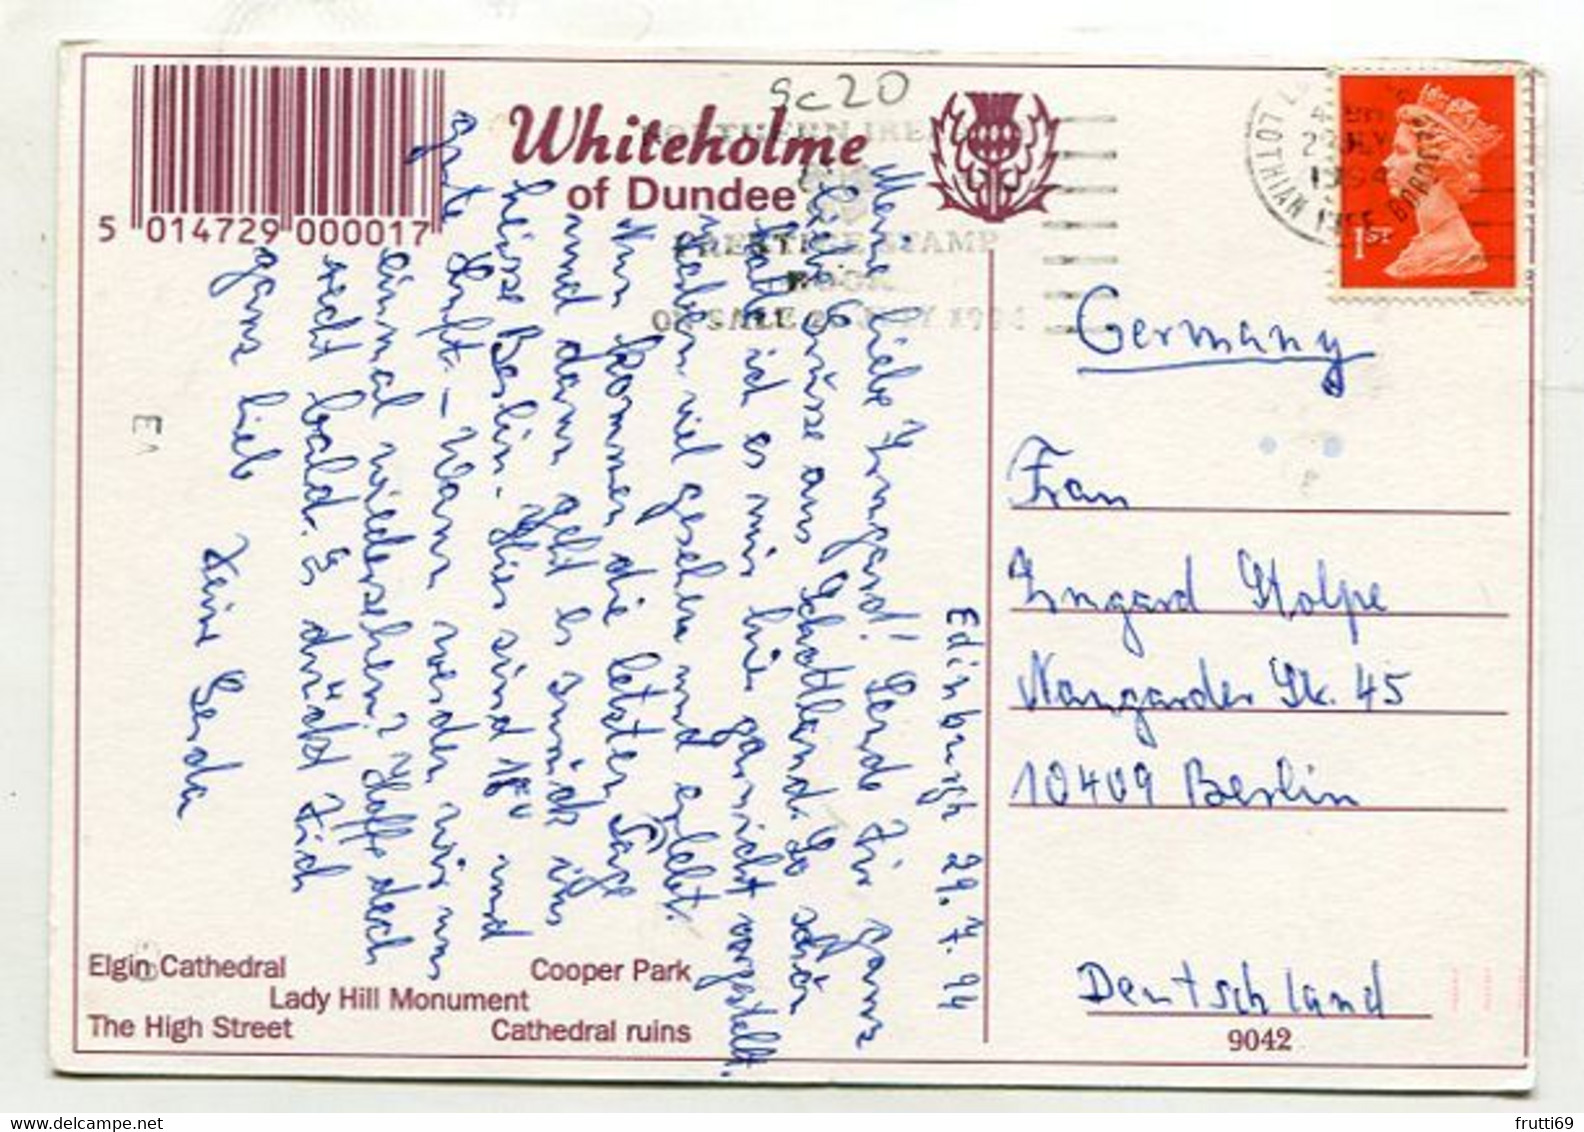 5 014729 000017
Sc20
Whiteholme
of Dundee
NORTHERN IRELAND
PRESTIGE STAMP
BOOK
ON SALE 26 JULY 1994
LOTHIAN
BORDERS
1994
1ST
Edinburgh 29.7.94
Meine liebe Irmgard! Sende Dir ganz
liebe Grüsse aus Schottland. So schön
hatt ich es mir hier garnicht vorgestellt.
Haben viel gesehen und erlebt.
Nun kommen die letzten Tage
und dann geht es zurück ins
heisse Berlin. Hier sind 18° und
gute Luft – Wann werden wir uns
einmal wiedersehen? Hoffe doch
recht bald. Es drückt Dich
ganz lieb
Deine Gerda
Germany
Frau
Irmgard Stolpe
Naugarder Str. 45
10409 Berlin
Deutschland
9042
E1
Elgin Cathedral
Cooper Park
Lady Hill Monument
The High Street
Cathedral ruins
frutti69